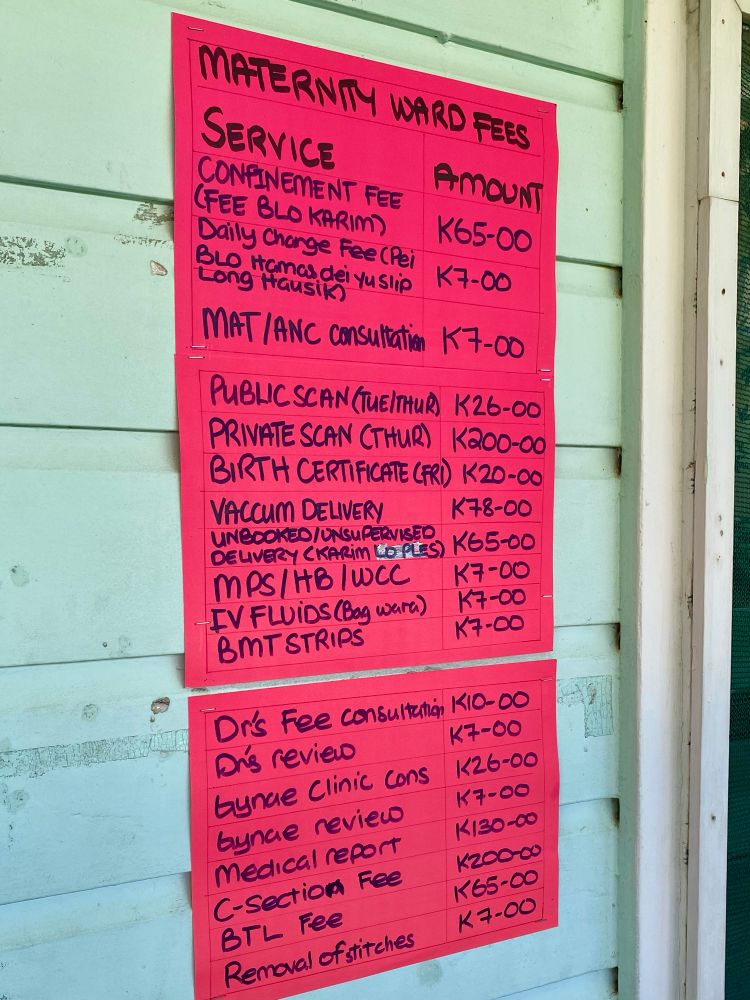 MATERNITY WARD FEES
SERVICE AMOUNT
CONFINEMENT FEE
(FEE BLO KARIM) K65-00
Daily Charge Fee (Pei
BLO Hamas dei yu slip
Long Hausik) K7-00
MAT/ANC consultation K7-00
PUBLIC SCAN (TUE/THUR) K26-00
PRIVATE SCAN (THUR) K200-00
BIRTH CERTIFICATE (FRI) K20-00
VACCUM DELIVERY K78-00
UNBOOKED/UNSUPERVISED
DELIVERY (KARIM LO PLES) K65-00
MPS/HB/WCC K7-00
IV FLUIDS (Bag wara) K7-00
BMT STRIPS K7-00
Dr's Fee consultation K10-00
Dr's review K7-00
Gynae Clinic Cons K26-00
Gynae review K7-00
Medical report K130-00
C-Section Fee K200-00
BTL Fee K65-00
Removal of stitches K7-00